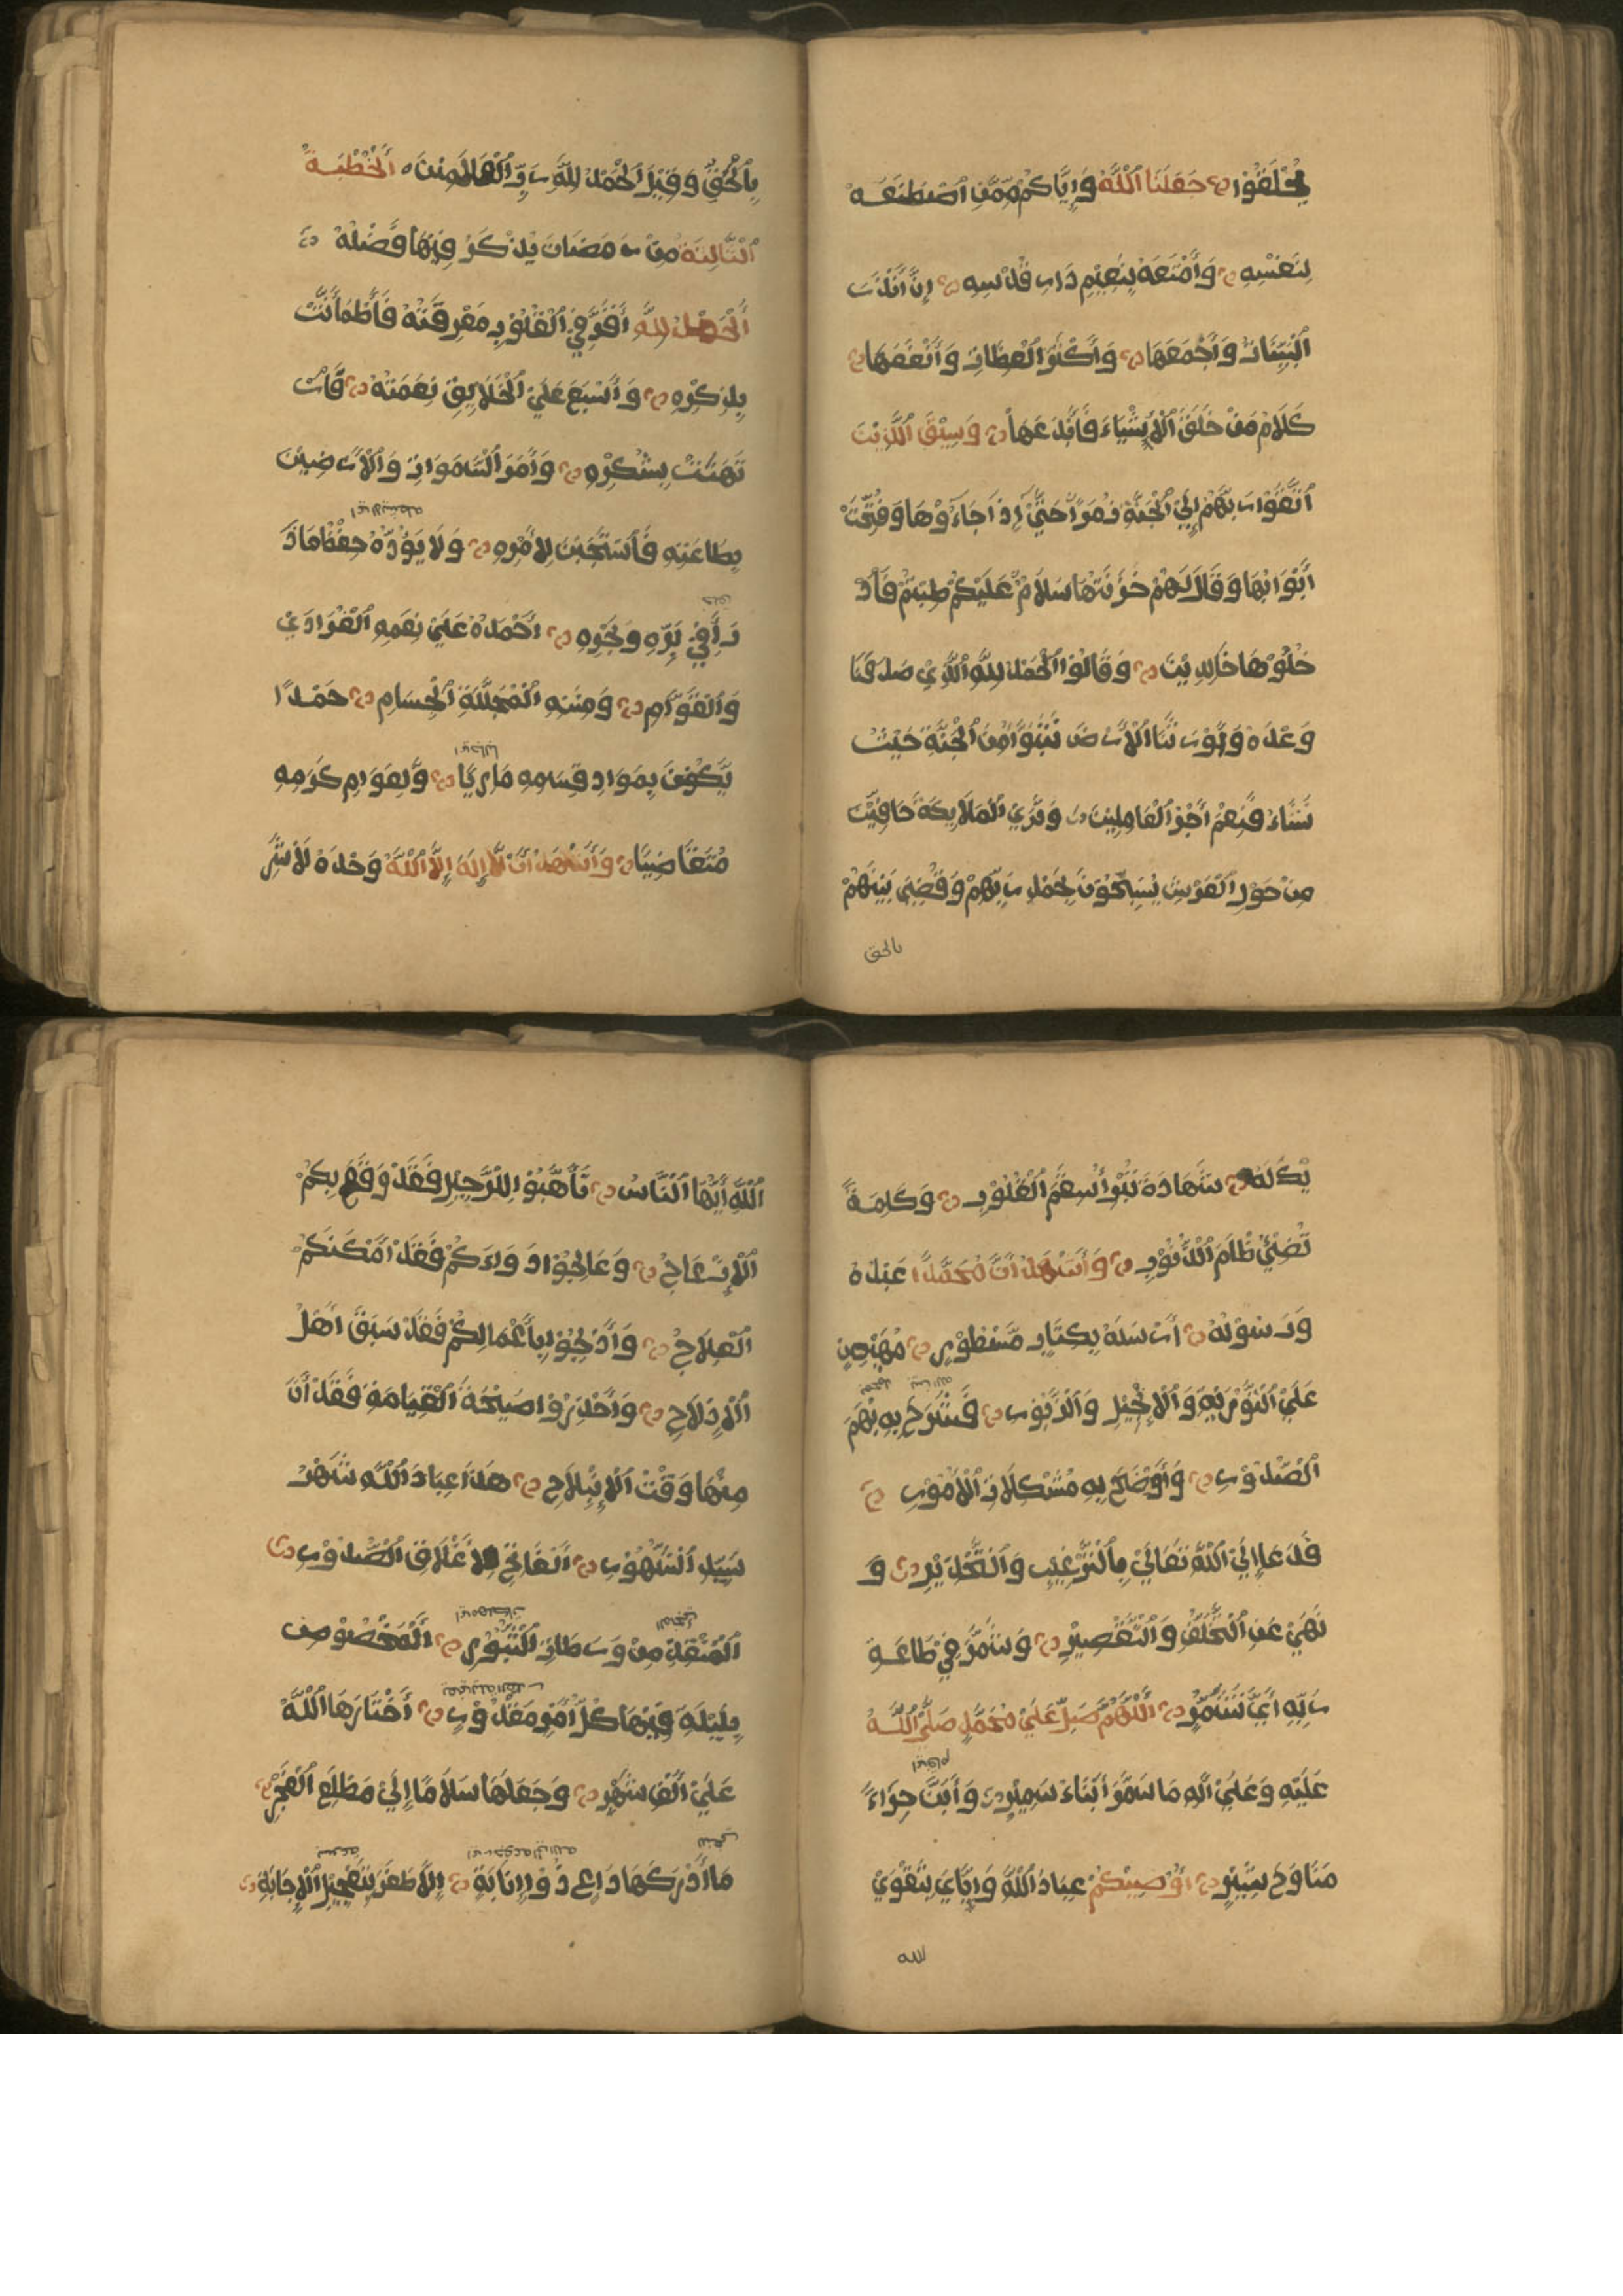 يُخْلَفُوا جَعَلَنَا اللَّهُ وَإِيَّاكُمْ مِمَّنِ اصْطَنَعَهُ
لِنَفْسِهِ وَأَمْتَعَهُ بِنَعِيمِ دَارِ قُدْسِهِ إِنَّ أَنْدَرَ
الْبَيِّنَاتِ وَأَجْمَعَهَا وَأَكْثَرَ الْعِظَاتِ وَأَنْفَعَهَا
كَلَامُ مَنْ خَلَقَ الْأَشْيَاءَ فَأَبْدَعَهَا وَسِيقَ الَّذِينَ
اتَّقَوْا رَبَّهُمْ إِلَى الْجَنَّةِ زُمَرًا حَتَّى إِذَا جَاءُوهَا وَفُتِحَتْ
أَبْوَابُهَا وَقَالَ لَهُمْ خَزَنَتُهَا سَلَامٌ عَلَيْكُمْ طِبْتُمْ فَادْ
خُلُوهَا خَالِدِينَ وَقَالُوا الْحَمْدُ لِلَّهِ الَّذِي صَدَقَنَا
وَعْدَهُ وَأَوْرَثَنَا الْأَرْضَ نَتَبَوَّأُ مِنَ الْجَنَّةِ حَيْثُ
نَشَاءُ فَنِعْمَ أَجْرُ الْعَامِلِينَ وَتَرَى الْمَلَائِكَةَ حَافِّينَ
مِنْ حَوْلِ الْعَرْشِ يُسَبِّحُونَ بِحَمْدِ رَبِّهِمْ وَقُضِيَ بَيْنَهُمْ
بالحق
بِالْحَقِّ وَقِيلَ الْحَمْدُ لِلَّهِ رَبِّ الْعَالَمِينَ ٥ الْخُطْبَةُ
الثَّالِثَةُ مِنْ رَمَضَانَ يُذْكَرُ فِيهَا فَضْلُهُ
الْحَمْدُ لِلَّهِ أَقَرَّ فِي الْقُلُوبِ مَعْرِفَتَهُ فَاطْمَأَنَّتْ
بِذِكْرِهِ وَأَسْبَغَ عَلَى الْخَلَايِقِ نِعْمَتَهُ فَانْ
تَهَتْ بِشُكْرِهِ وَأَمَرَ السَّمَوَاتِ وَالْأَرَضِينَ
بِطَاعَتِهِ فَاسْتَجَبْنَ لِأَمْرِهِ وَلَا يَؤُدُهُ حِفْظُ مَا ذَ
رَأَ فِي بَرِّهِ وَبَحْرِهِ أَحْمَدُهُ عَلَى نِعَمِهِ الْفُرَادَى
وَالتُّؤَامِ وَمِنَنِهِ الْمُجَلِّلَةِ الْجِسَامِ حَمْدًا
يَكُونُ بِمَوَادِ قِسَمِهِ مَارِيًا وَلِعَوَامِ كَرَمِهِ
مُتَقَاضِيًا وَأَشْهَدُ أَنْ لَا إِلَهَ إِلَّا اللَّهُ وَحْدَهُ لَا شَرِ
يكَ لَهُ شَهَادَةً تُبْرِأُ سِقَمَ الْقُلُوبِ وَكَلِمَةً
تُضِيءُ ظَلَامَ الذُّنُوبِ وَأَشْهَدُ أَنَّ مُحَمَّدًا عَبْدُهُ
وَرَسُولُهُ أَرْسَلَهُ بِكِتَابٍ مَسْطُورٍ مُهَيْمِنٍ
عَلَى التَّوْرَيةِ وَالْإِنْجِيلِ وَالزَّبُورِ فَشَرَحَ بِهِ بُهَمَ
الصُّدُورِ وَأَوْضَحَ بِهِ مُشْكِلَاتِ الْأُمُورِ
فَدَعَا إِلَى اللَّهِ تَعَالَى بِالتَّرْغِيبِ وَالتَّحْذِيرِ وَ
نَهَى عَنِ التَّخَلُّفِ وَالتَّقْصِيرِ وَشَمَّرَ فِي طَاعَةِ
رَبِّهِ أَيَّ تَشَمُّرٍ اللَّهُمَّ صَلِّ عَلَى مُحَمَّدٍ صَلَّى اللَّهُ
عَلَيْهِ وَعَلَى آلِهِ مَا سَمَرَ أَبْنَاءُ سَمِيرٍ وَأَبَنَّ حِرَاءً
مُنَاوِحُ ثَبِيرٍ أُوصِيكُمْ عِبَادَ اللَّهِ وَإِيَّايَ بِتَقْوَى
الله
اللَّهِ أَيُّهَا النَّاسُ تَأَهَّبُوا لِلرَّحِيلِ فَقَدْ وَقَعَ بِكُمْ
الْإِزْعَاجُ وَعَالِجُوا دَوَاءَكُمْ فَقَدْ أَمْكَنَكُمْ
الْعِلَاجُ وَادَّلِجُوا بِأَعْمَالِكُمْ فَقَدْ سَبَقَ أَهْلُ
الْإِدْلَاجِ وَاحْذَرُوا صَيْحَةَ الْقِيَامَةِ فَقَدْ أَنَ
مِنْهَا وَقْتُ الْإِبْلَاجِ هَذَا عِبَادَ اللَّهِ شَهْرُ
سَيِّدُ الشُّهُورِ الْفَاتِحُ لِأَغْلَاقِ الصُّدُورِ
الْمُنْقِذِ مِنْ وَرَطَاتِ الثُّبُورِ الْمَخْصُوصِ
بِلَيْلَةٍ فِيهَا كُلُّ أَمْرٍ مَقْدُورٍ اخْتَارَهَا اللَّهُ
عَلَى أَلْفِ شَهْرٍ وَجَعَلَهَا سَلَامًا إِلَى مَطْلَعِ الْفَجْرِ
مَا أَدْرَكَهَا دَاعٍ ذُو إِنَابَةٍ إِلَّا ظَفِرَ بِتَعْجِيلِ الْإِجَابَةِ